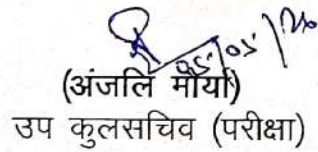 (अंजलि मौर्या)
उप कुलसचिव (परीक्षा)